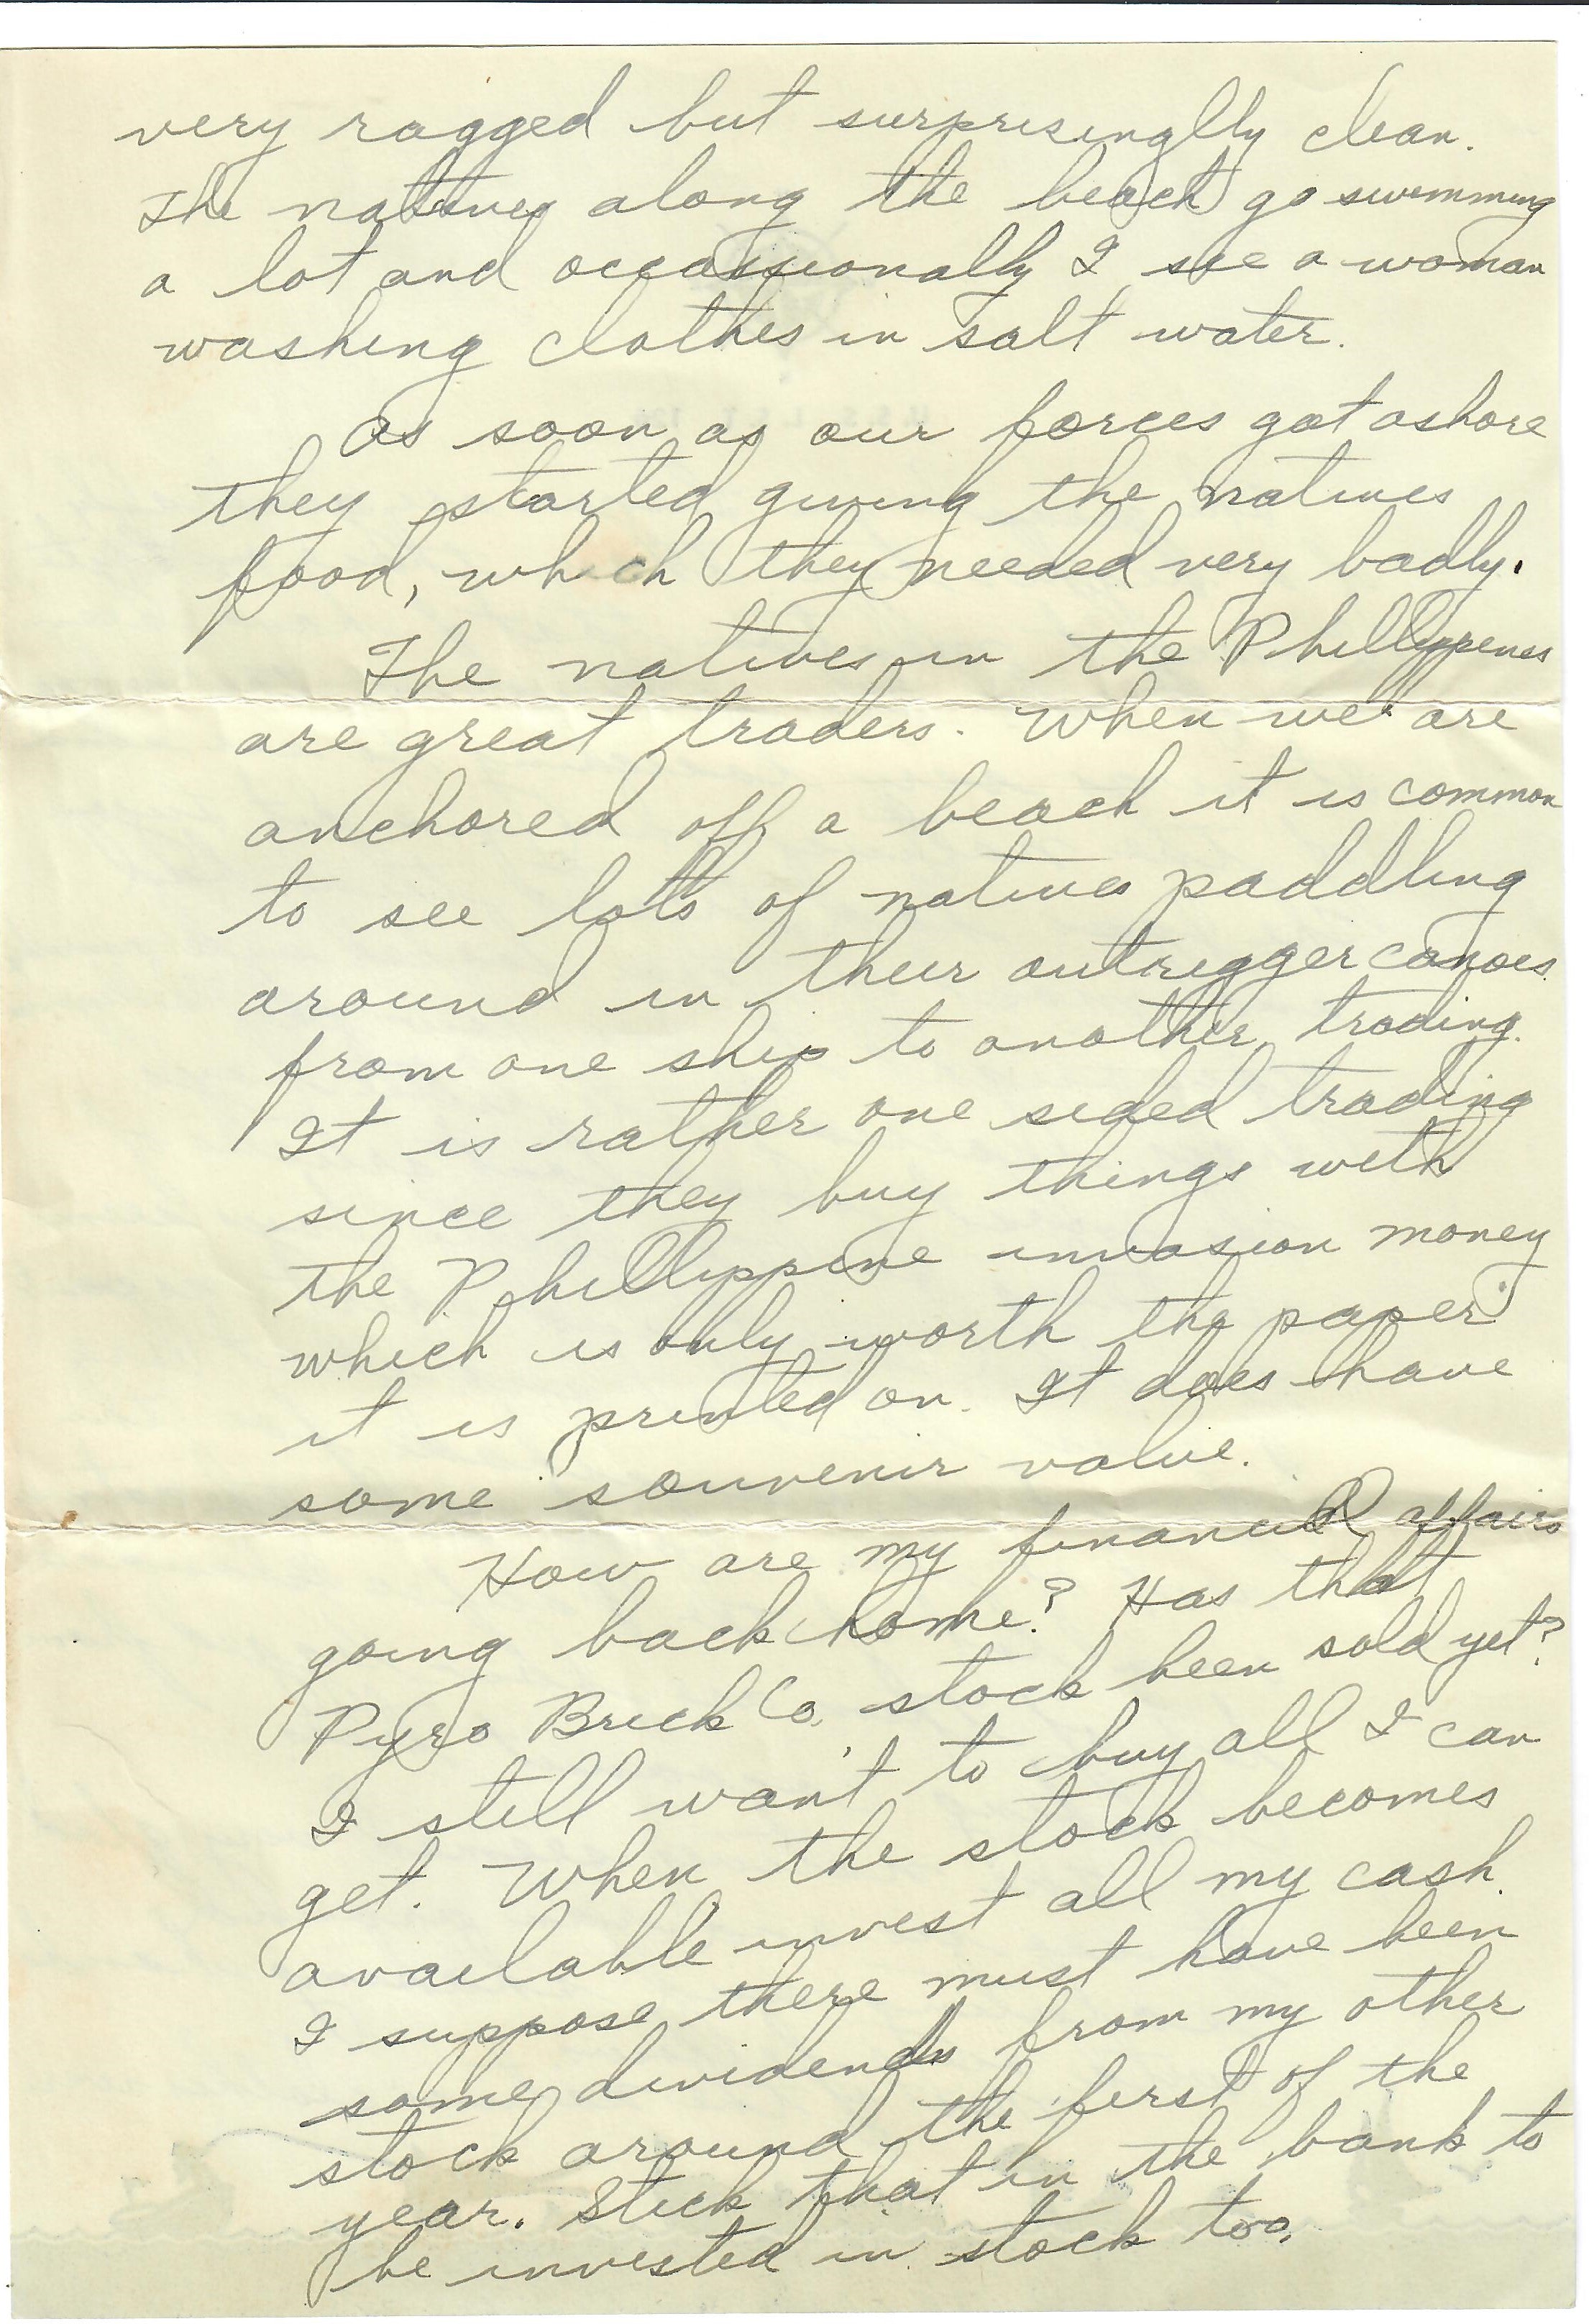 very ragged but surprisinglly clean.
The natives along the beach go swimming
a lot and occassionally I see a woman
washing clothes in salt water.
As soon as our forces got ashore
they started giving the natives
food, which they needed very badly.
The natives in the Phillippenes
are great traders. When we are
anchored off a beach it is common
to see lots of natives paddling
around in their outrigger canoes
from one ship to another, trading.
It is rather one sided trading
since they buy things with
the Phillippine invasion money
which is only worth the paper
it is printed on. It does have
some souvenir value.
How are my financial affairs
going back home? Has that
Pyro Brick Co. stock been sold yet?
I still want to buy all I can
get. When the stock becomes
available invest all my cash.
I suppose there must have been
some dividends from my other
stock around the first of the
year. Stick that in the bank to
be invested in stock too.